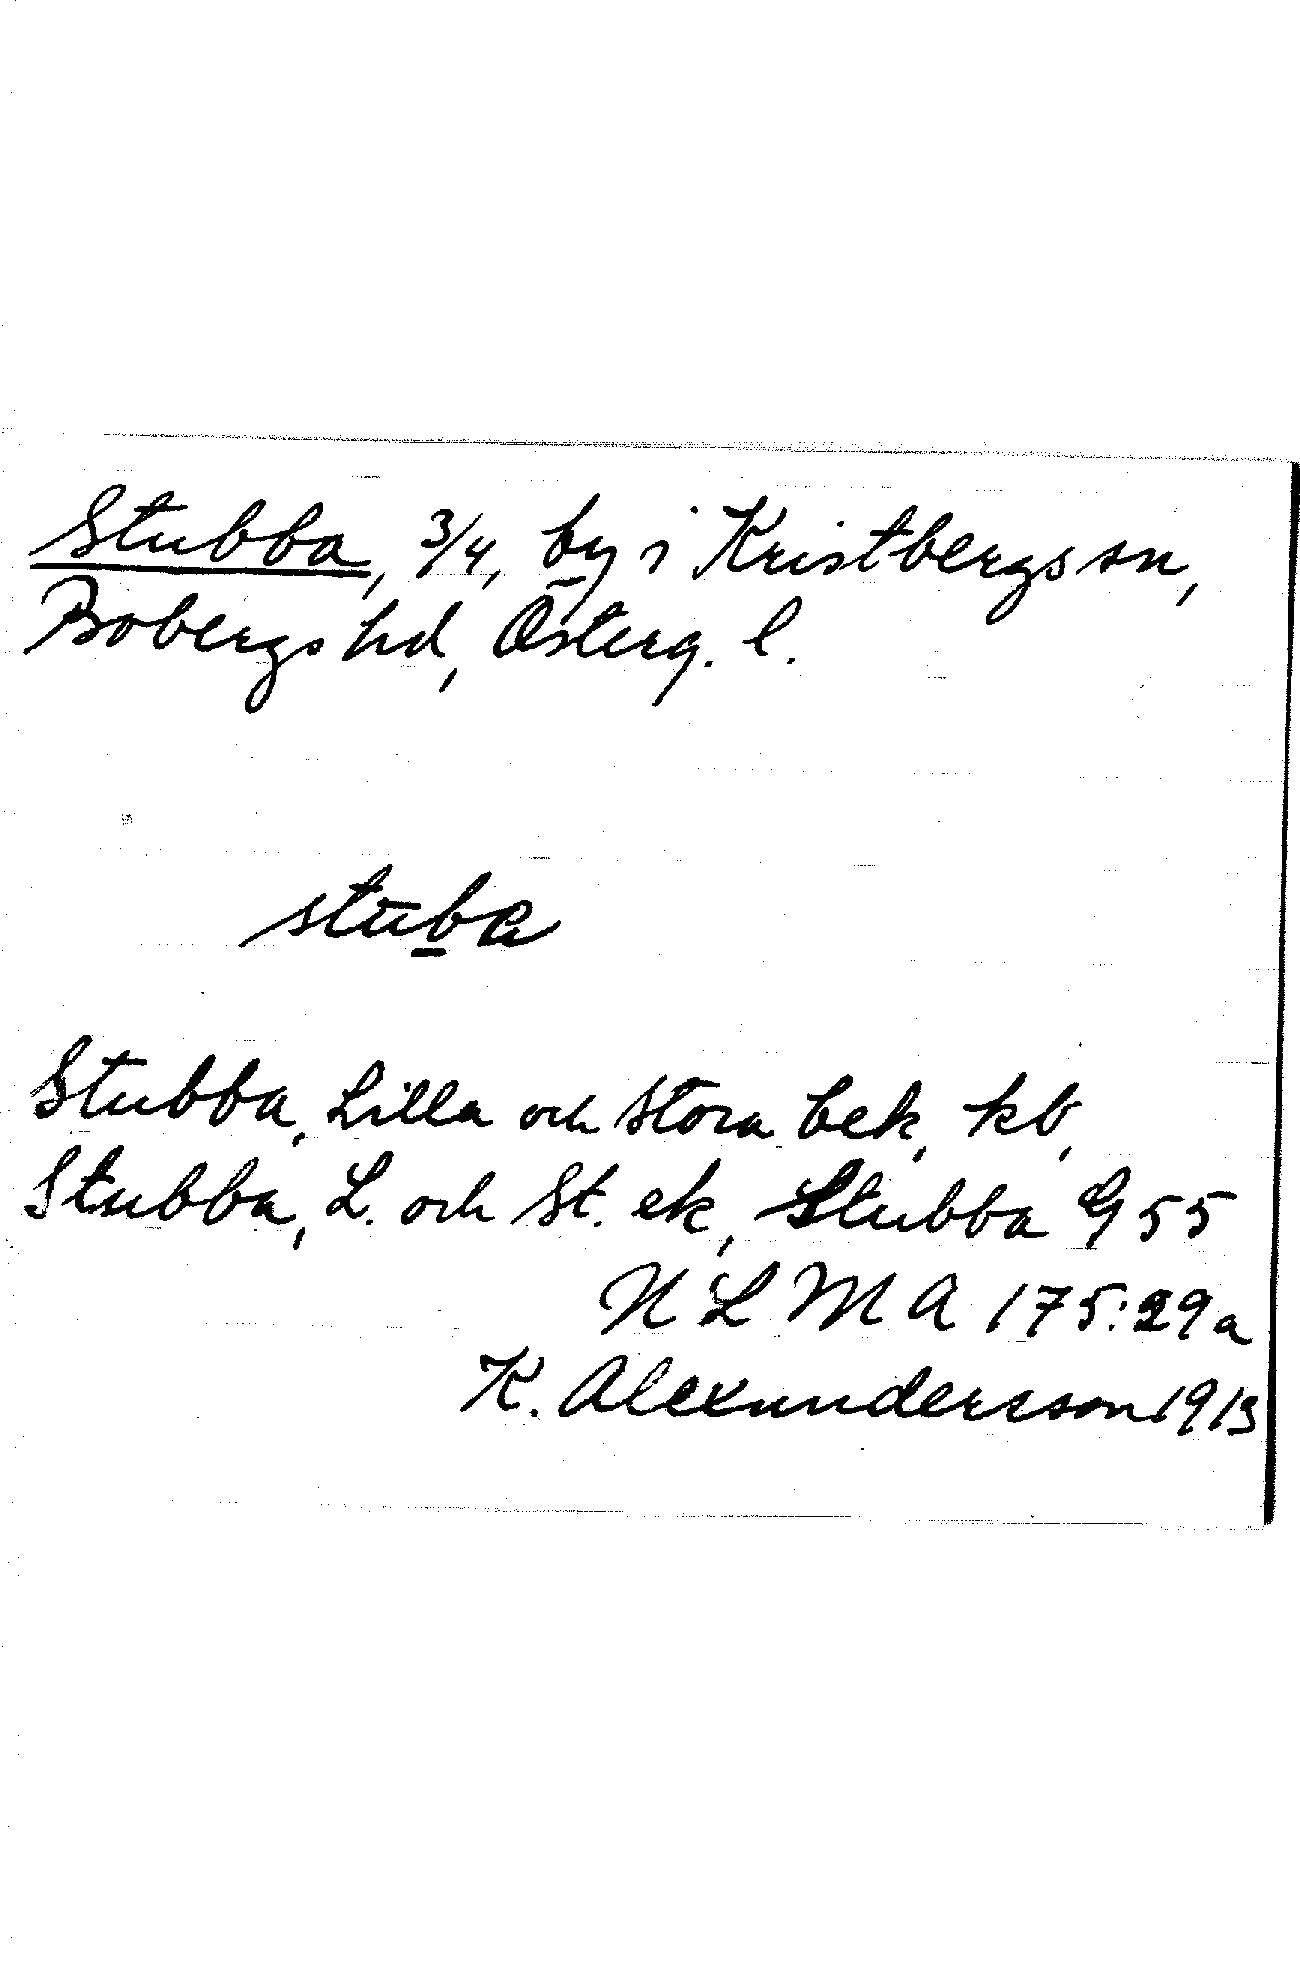 Stubba, 3/4, by i Kristbergs sn,
Bobergs hd, Österg. l.
stuba
Stubba, Lilla och Stora bek, kb,
Stubba, L. och St. ek, Stubba G 55
N L M A 175:29a
K. Alexandersson 1913